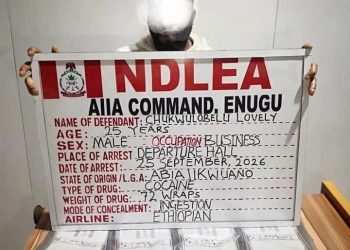 NDLEA
AIIA COMMAND, ENUGU
NAME OF DEFENDANT: CHUKWULOBELU LOVELY
AGE: 25 YEARS
SEX: MALE OCCUPATION BUSINESS
PLACE OF ARREST DEPARTURE HALL
DATE OF ARREST: 25 SEPTEMBER, 2026
STATE OF ORIGIN/L.G.A: ABIA/IKWUANO
TYPE OF DRUG: COCAINE
WEIGHT OF DRUG: 72 WRAPS
MODE OF CONCEALMENT: INGESTION
AIRLINE: ETHIOPIAN